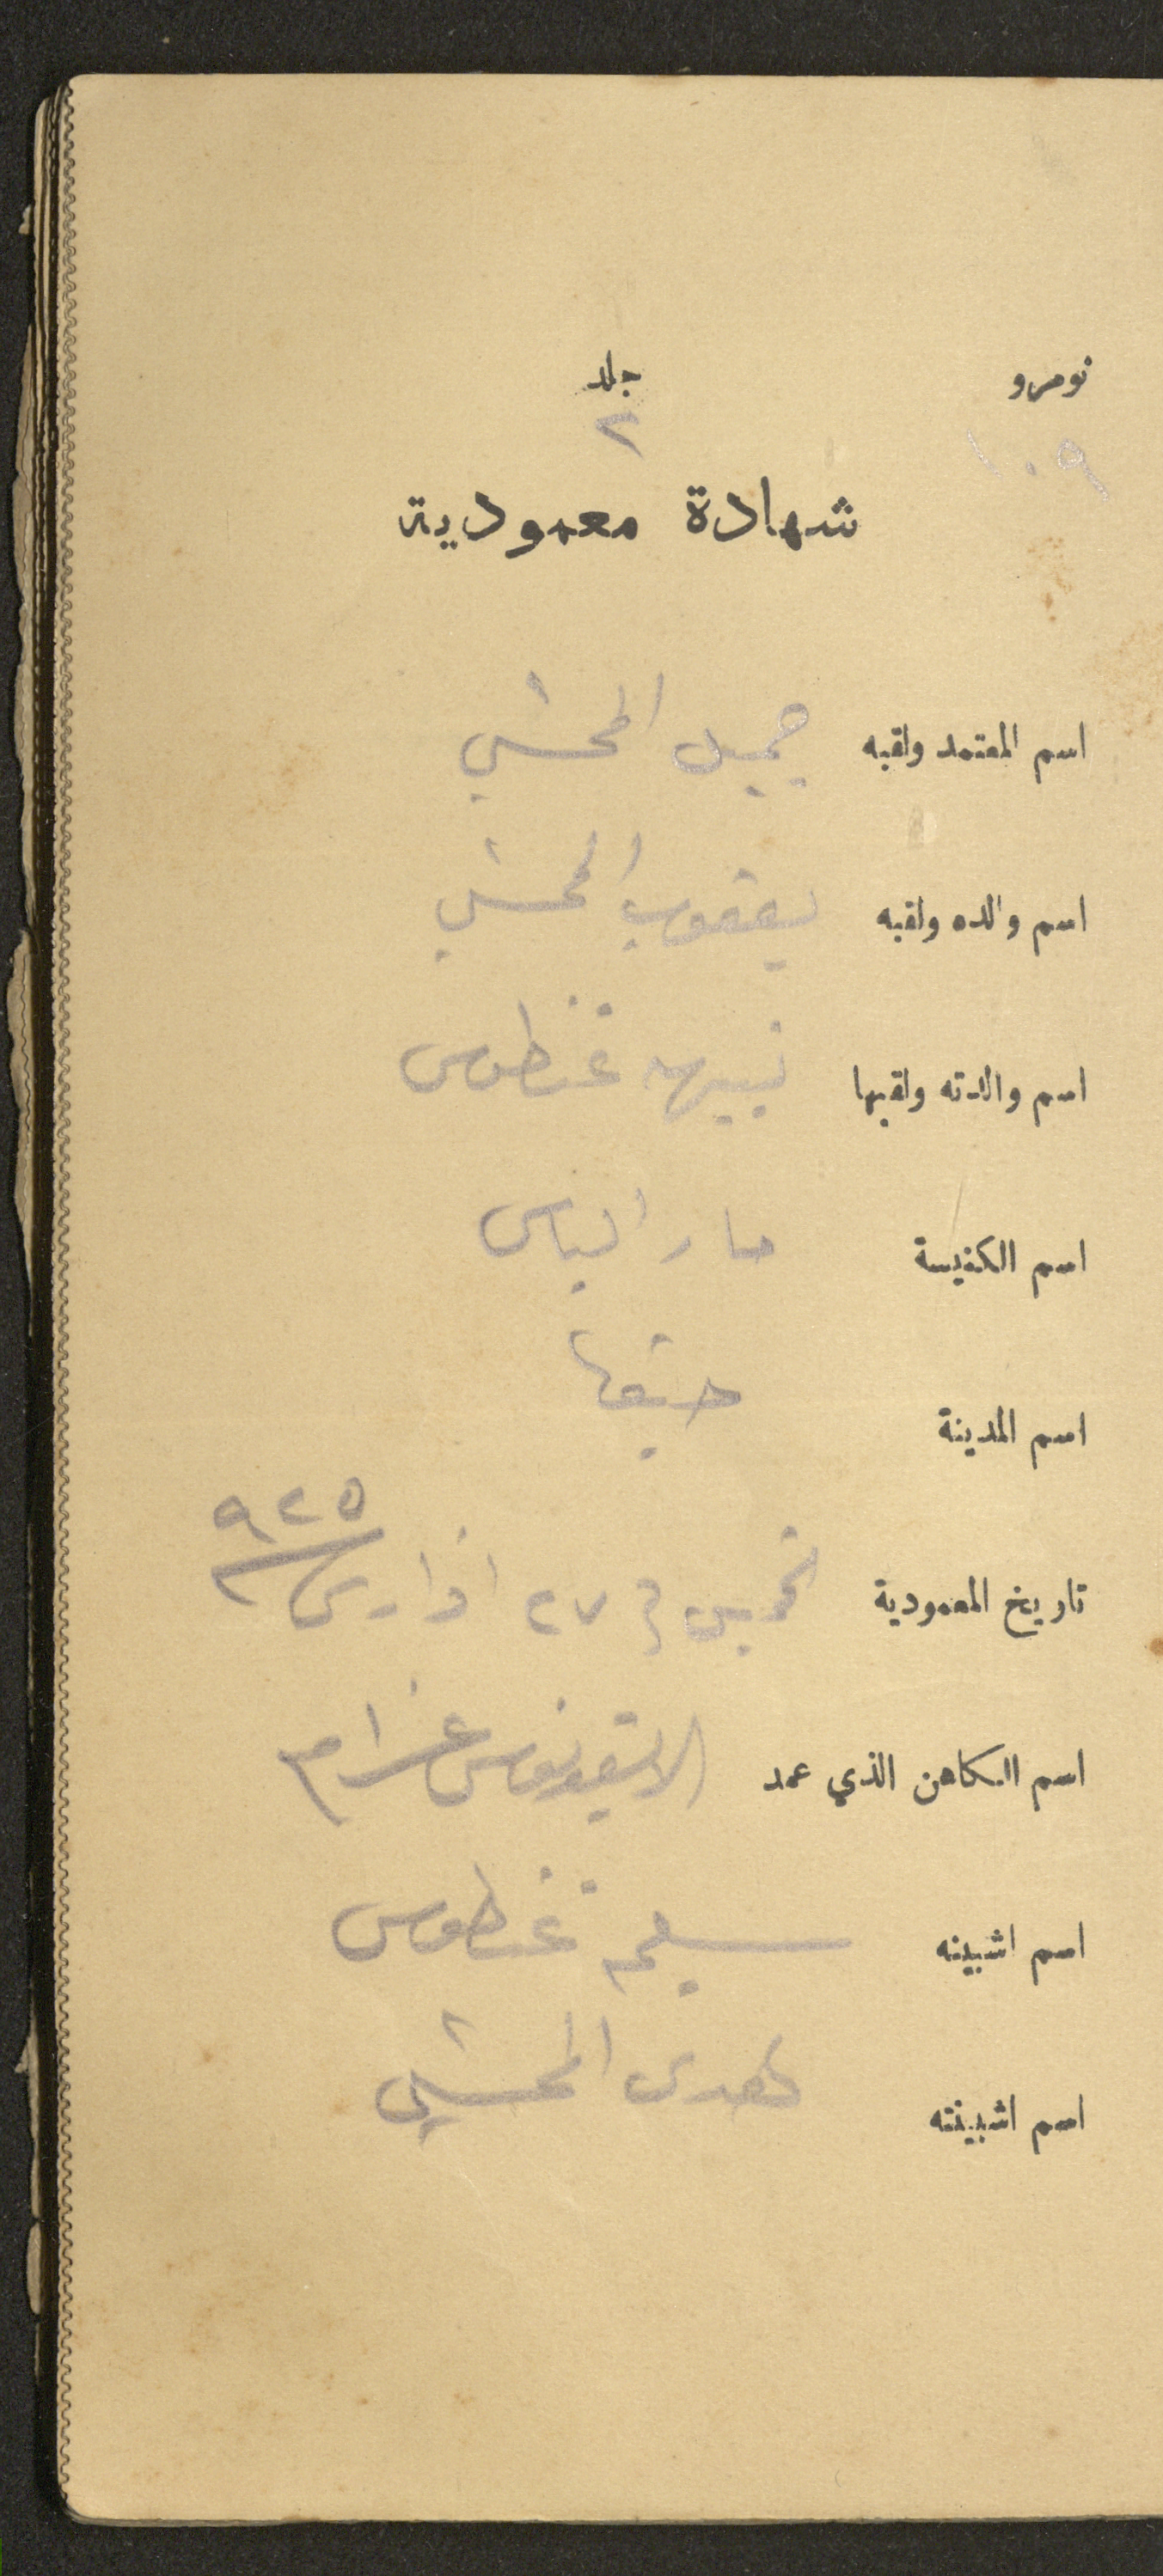 نومرو جلد
١٠٩ ٢
شهادة معمودية
اسم المعتمد ولقبه جميل المحشي
اسم والده ولقبه يعقوب المحشي
اسم والدته ولقبها نبيهه غنطوس
اسم الكنيسة مار الياس
اسم المدينة حيفا
تاريخ المعمودية الخميس في ٢٧ اذار سنة ٩٢٥
اسم الكاهن الذي عمد الايقونوس
اسم اشبينه سليم غنطوس
اسم اشبينته المحشي